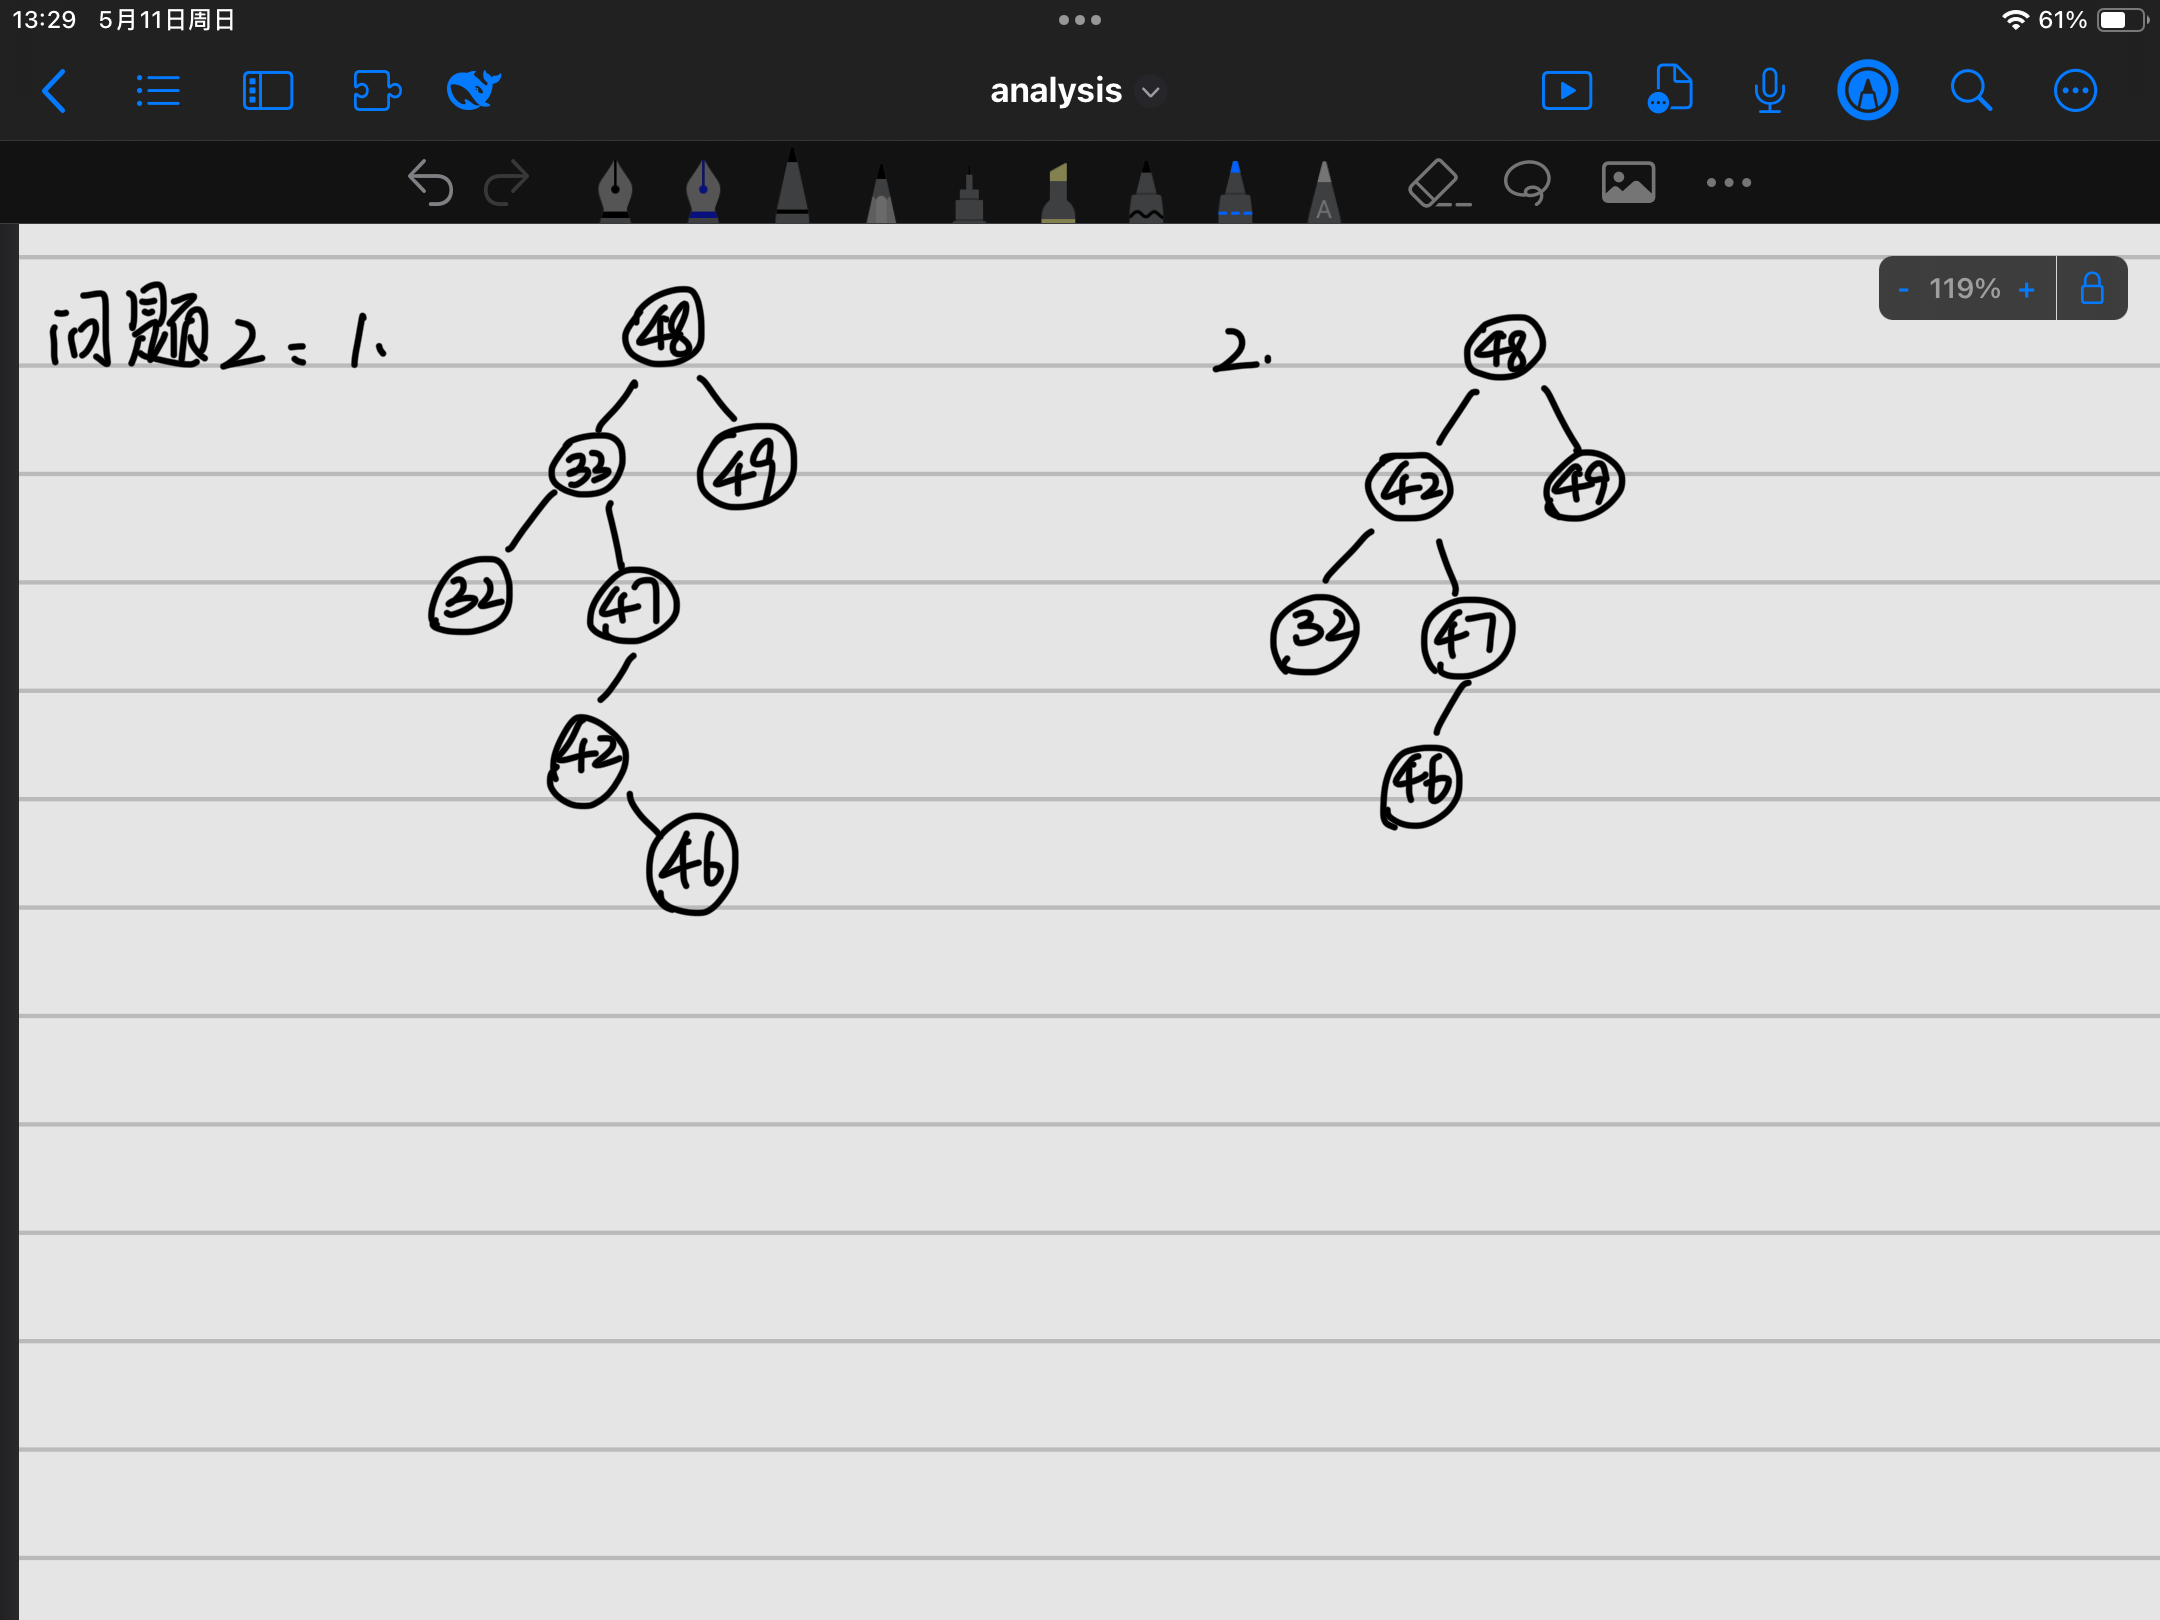 13:29 5月11日周日
61%
analysis
A
- 119% +
问题2: 1.
48
33 49
32 47
42
46
2.
48
42 49
32 47
46